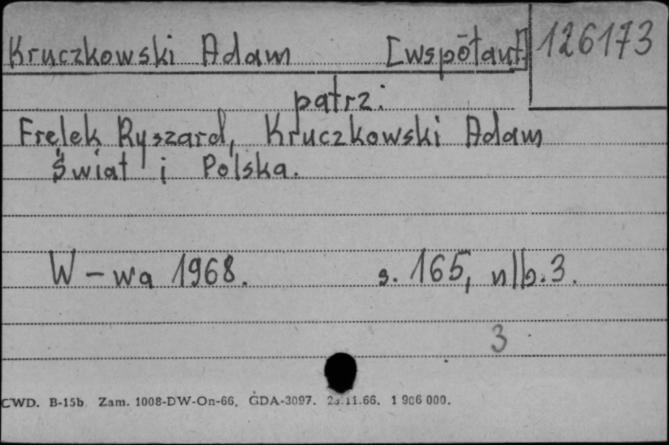 Kruczkowski Adam [współaut] 126173
patrz:
Frelek Ryszard, Kruczkowski Adam
Świat i Polska.
W-wa 1968. s. 165, nlb. 3.
3
CWD. B-15b. Zam. 1008-DW-On-66. GDA-3097. 23.11.66. 1 906 000.